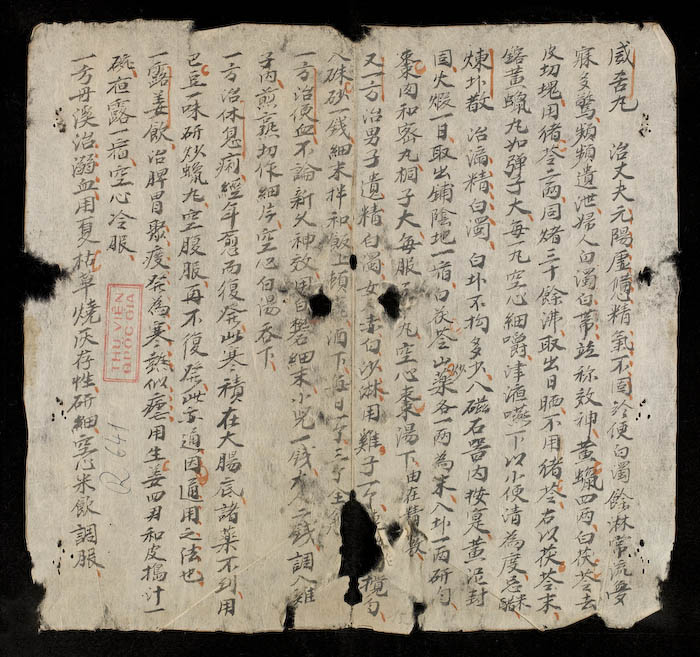 威喜丸 治丈夫元陽虛憊精氣不固於便白濁餘淋常流夢
寐多驚頻頻遺泄婦人白濁白帶並称效神黃蠟四兩白茯苓去
皮切塊用猪苓二兩同煮三十餘沸取出日晒不用猪苓右以茯苓末
鎔黃蠟丸如彈子大每一丸空心細嚼津液嚥下以小便清為度忌醋
煉圤散 治漏精白濁 白圤不拘多少入磁石器內按寔黃泥封
固火煅一日取出鋪陰地一宿白茯苓山藥各一兩為末入圤一兩研勻
棗肉和密丸桐子大每服 丸空心棗湯下由在
又一方治男子遺精白濁女人赤白沙淋用雞子一个 攪勻
入硃砂一錢細末拌和飯上頓 酒下每日一个三个
一方治便血不論新久神效用白礬細末小兒一錢大 二錢調入雞
子內煎熟切作細片空心白湯吞下
一方治休息痢經年愈而復發此寒積在大腸底諸藥不到用
巴豆一味研炒蠟丸空腹服再不復發此亦通因通用之法也
一露姜飲治脾胃聚痰發為寒熱似瘧用生姜四兩和皮搗汁一
碗夜露一宿空心冷服
一方丹溪治溺血用夏枯草燒灰存性研細空心米飲調服
THU VIỆN
QUỐC GIA
R 641